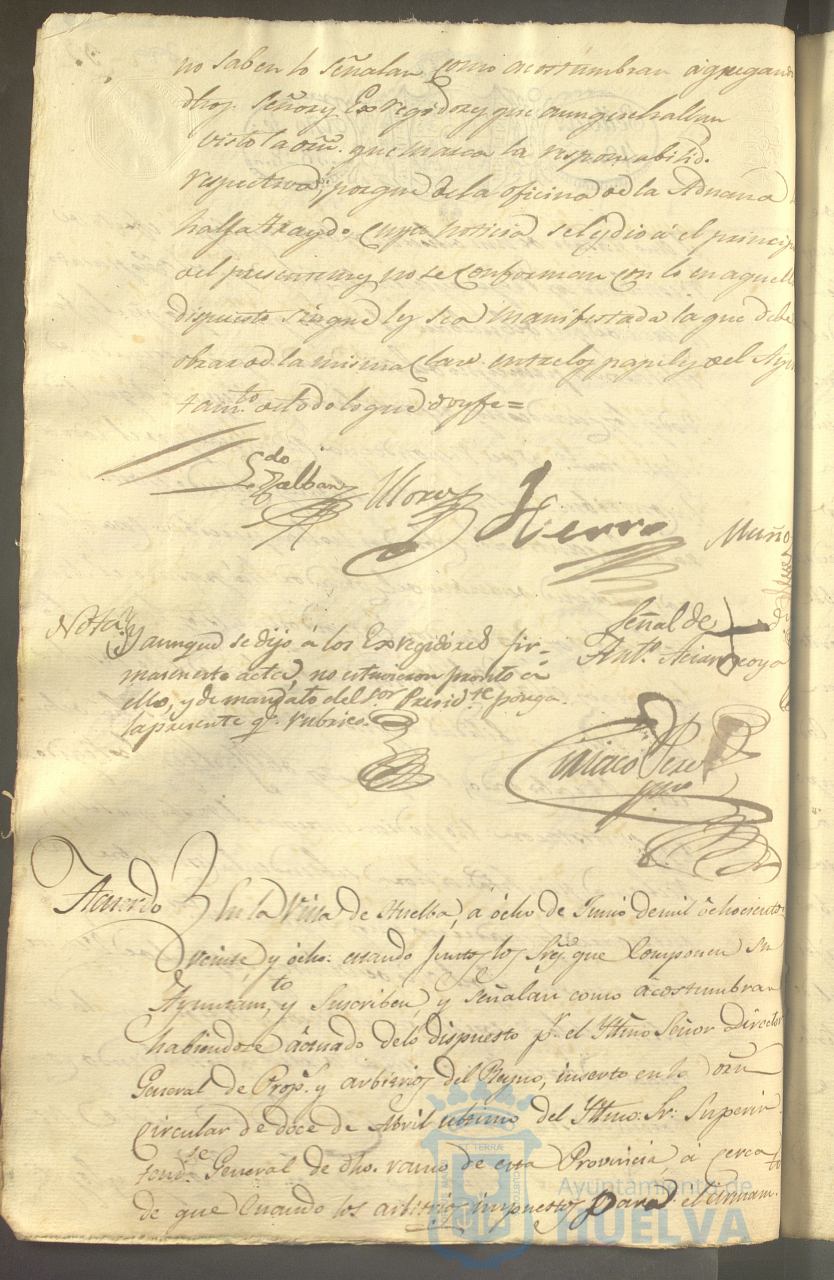 no saben lo señalan como acostumbran agregando
dhos. Señores Exregidores que aunque hallan
visto la orn. que marca la responsabilid.
respectiva, porque de la oficina de la Aduana
halla traydo, cuya noticia se les dio á el principio
del presente no se conforman con lo en aquella
dispuesto sin que les sea manifestada la que debe
obrar de la misma clase entre los papeles del Ayun
tamto. de todo lo que doy fe=
Ldo
Galban
Moro
Hierro
Muño
Nota
Señal de
Anto.
y aunque se dijo á los Exregidores fir-
masen este acta, no estuvieron pronto á
ello, y de mandato del Sor. Presidte. pongo
la presente q. rubrico
Acuerdo
En la Villa de Huelba, á ocho de Junio de mil ochociento
veinte y ocho: estando juntos los Sres. que componen su
Ayuntamto. y suscriben, y señalan como acostumbran
habiendose de lo dispuesto pr. el Yltmo Señor Director
General de Props. y arbitrios del Reyno, inserto en la orn
circular de doce de Abril ultimo del Yltmo. Sr. Superin
tendse. General de dho. ramo de esta Provincia, á cerca
de que cuando los arbitrios impuestos para el
Ayuntamiento de
HUELVA